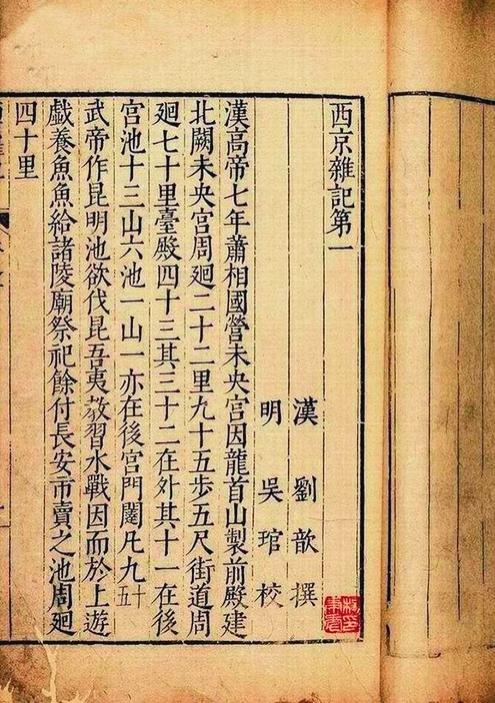 西京雜記第一
漢劉歆撰
明吳琯校
漢高帝七年蕭相國營未央宮因龍首山製前殿建
北闕未央宮周廻二十二里九十五歩五尺街道周
廻七十里臺殿四十三其三十二在外其十一在後
宮池十三山六池一山一亦在後宮門闥凡九十五
武帝作昆明池欲伐昆吾夷教習水戰因而於上遊
戲養魚魚給諸陵廟祭祀餘付長安市賣之池周廻
四十里